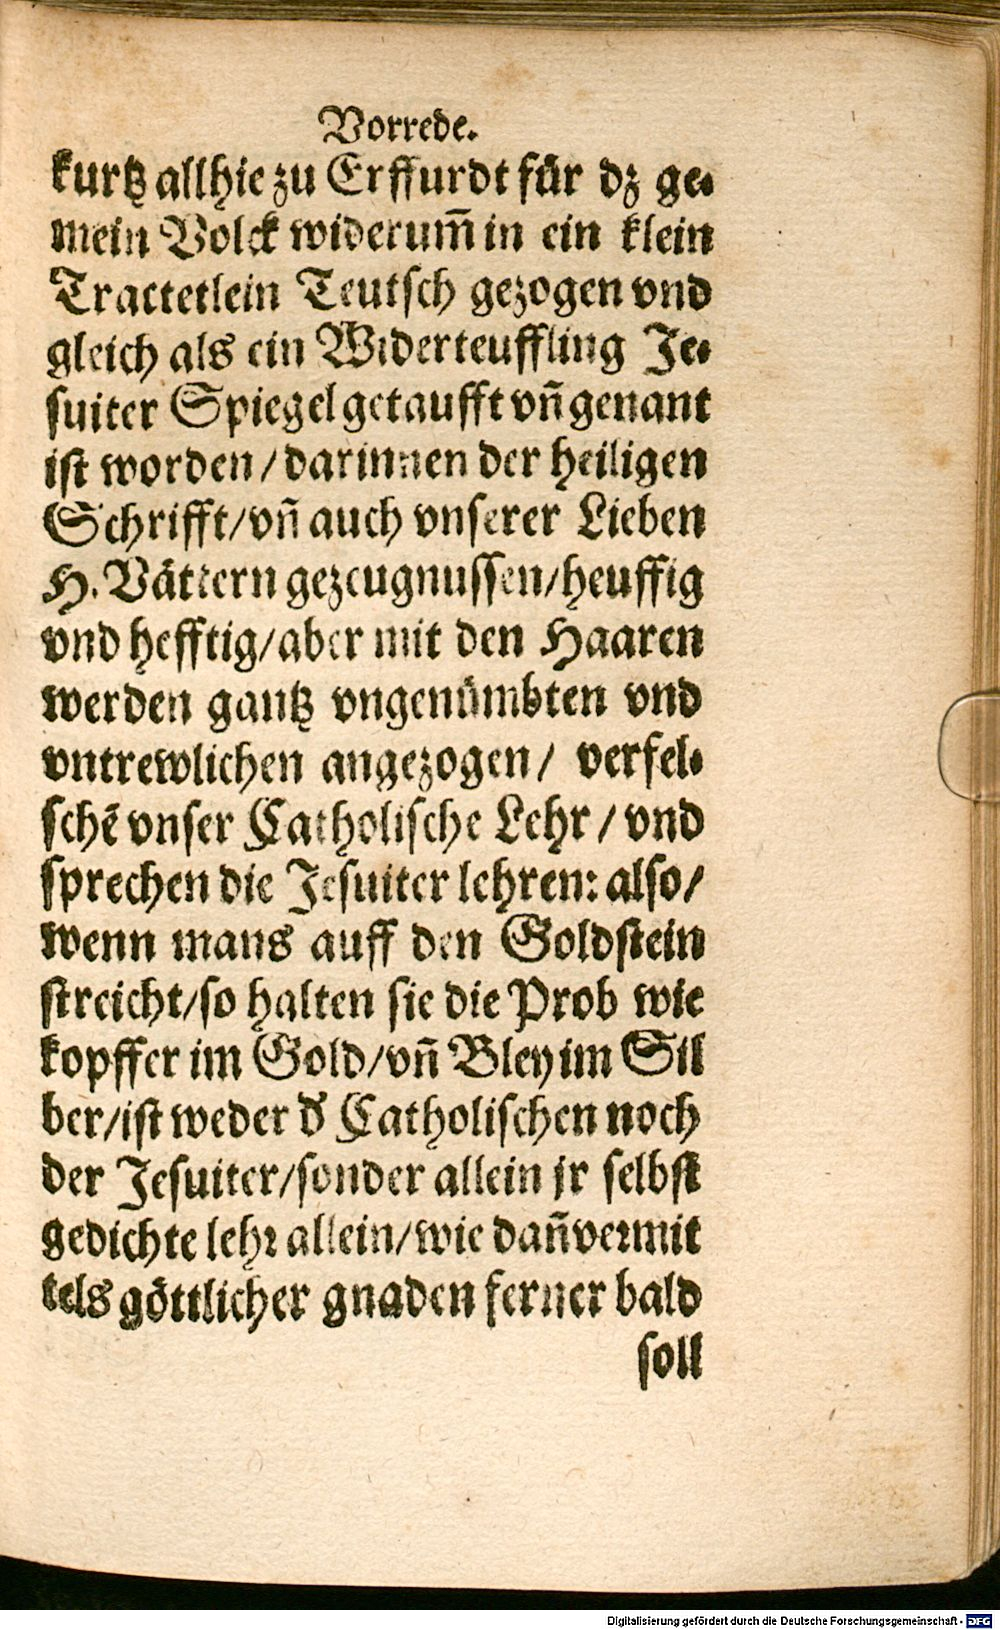 Vorrede.
kurtz allhie zu Erffurdt für dz ge-
mein Volck widerum̃ in ein klein
Tractetlein Teutsch gezogen vnd
gleich als ein Widerteuffling Je-
suiter Spiegel getaufft vñ genant
ist worden / darinnen der heiligen
Schrifft / vñ auch vnserer Lieben
H. Vättern gezeugnussen / heuffig
vnd hefftig / aber mit den Haaren
werden gantz vngenümbten vnd
vntrewlichen angezogen / verfel-
schē vnser Catholische Lehr / vnd
sprechen die Jesuiter lehren: also /
wenn mans auff den Goldstein
streicht / so halten sie die Prob wie
kopffer im Gold / vñ Bley im Sil
ber / ist weder d' Catholischen noch
der Jesuiter / sonder allein jr selbst
gedichte lehr allein / wie dañ vermit
tels göttlicher gnaden ferner bald
soll
Digitalisierung gefördert durch die Deutsche Forschungsgemeinschaft - DFG